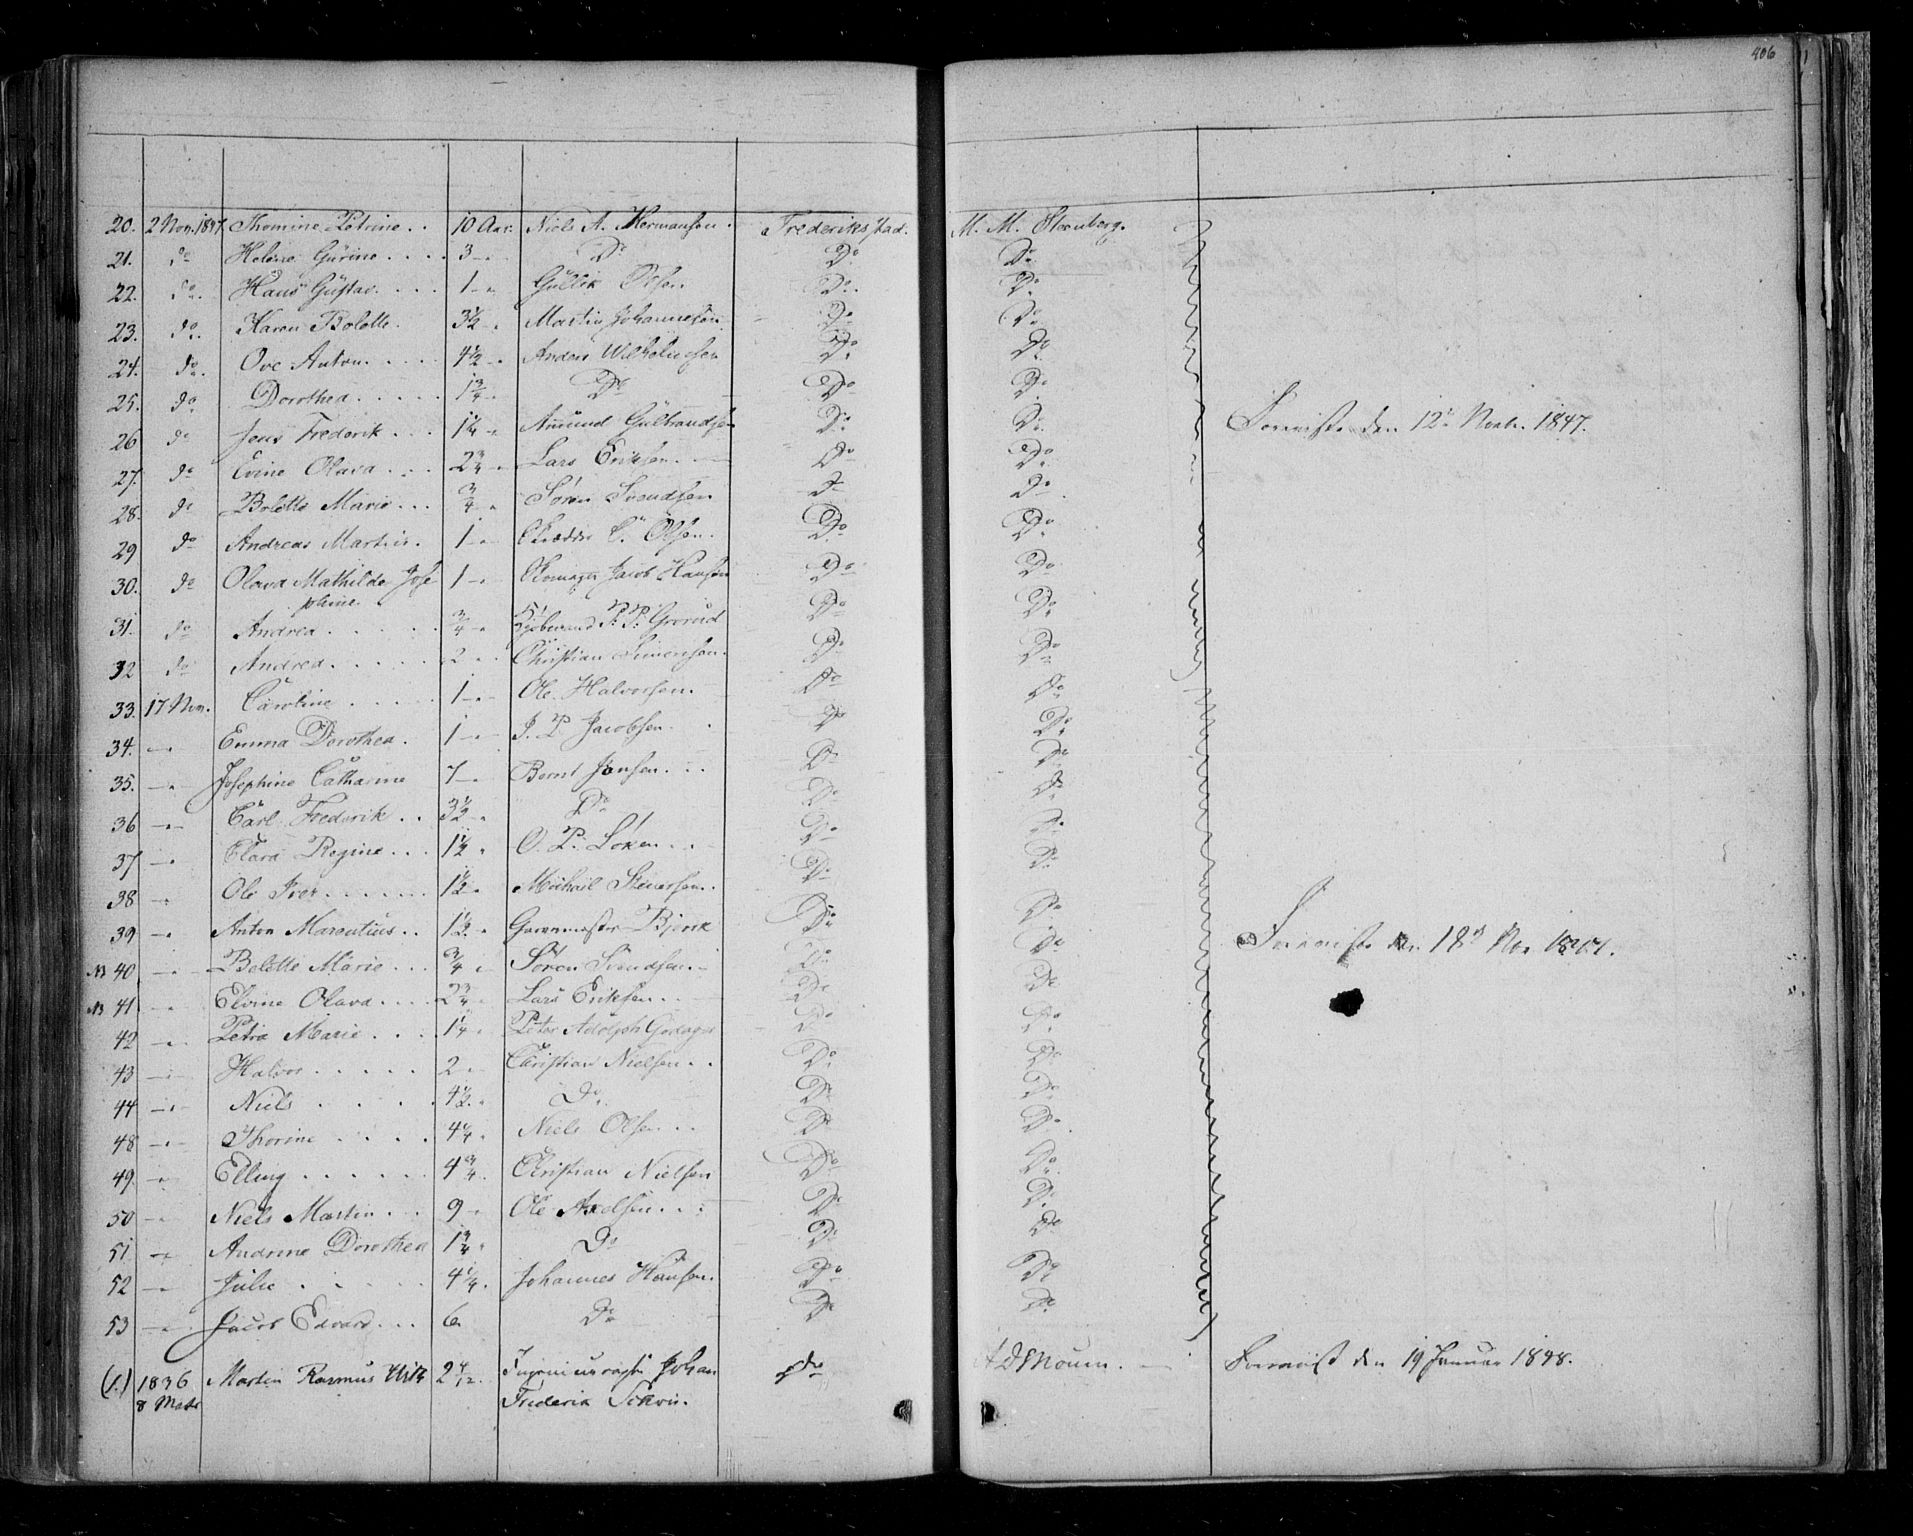 406
20. 2 Nov. 1847. Thomine Petrine . . 10 Aar. Niels A. Hermansen. Frederikstad. M. M. Steenberg.
21. do Helene Gurine . . . . 3 -"- Do Do Do
22. do. Hans Gustav . . . . 1 -"- Gullik Olsen Do. Do.
23. do. Karen Bolette. 3½ -". Martin Johannesen Do Do.
24. do. Ove Anton . . . . 4½ -"- Anders Wilhelmsen Do Do
25. do Dorothea . . . . . 1¾ -". Do Do Do.
26 do Jens Frederik . . . 1¼ -". Amund Gulbrandsen Do Do. Forevist den 12te Novbr. 1847.
27. do Evine Olava . . . 2¾ -". Lars Eriksen. Do Do.
28. do Bolette Marie . . . ¾ -". Søren Svendsen Do Do
29 do Andreas Martin. 1 -"- Skrædder C. Olsen. Do Do
30. do Olava Mathilde Jose 1 -"- Skomager Jacob Hansen Do Do
phine.
31. do Andrea . . . . . ¾ -"- Kjøbmand P. P. Grorud Do Do.
32 do Andrea . . . . . 2 ". Christian Simensen. Do Do
33. 17 Nov. Caroline . . . . . 1 -"- Ole Halvorsen. Do Do
34. -"- Emma Dorothea . 1 -"- J. P. Jacobsen. Do Do
35. -"- Josephine Catharine 7 -"- Bernt Jensen . . . Do Do
36 -"- Carl Frederik . . 3½ -". Do Do Do
37 -". Clara Regine . . . 1½ ". O. P. Løken . . . Do Do.
38 -". Ole Iver . . . . . . 1½ -". Michael Steversen. Do Do
39 -". Anton Marentius . . 1½. -". Garvermester Bjerck Do Do
N3 40 -"- Bolette Marie . . . ¾ ". Søren Svendsen. Do Do Forevist den 18d Nov 1847.
N3 41 -". Elvine Olava . . . . 2¾ ". Lars Eriksen . . Do Do
42 -"- Petra Marie . . . 1¼ ". Peter Adolph Do Do
43 -"- Halvor . . . . . 2 -"- Christian Nielsen . . Do Do
44 -"- Niels . . . . . 4½. ". Do. Do Do
48 -"- Thorine . . . . 4¼ ". Niels Olsen . . Do Do.
49 -"- Elling . . . . . . 4¾ ". Christian Nielsen Do Do.
50 -"- Niels Martin . . . 9 -"- Ole Axelsen . . . Do Do
51 -"- Andrine Dorothea 1¾ ". Do Do Do
52 -"- Julie . . . . . 4¼ ". Johannes Hansen. Do Do
53 -"- Jacob Edvard . . . 6 Do Do Do
(1.) 1836 Martin Rasmus 2 4/12. Johan do A D Moum. Forevist den 19 Januar 1848.
8 Frederik